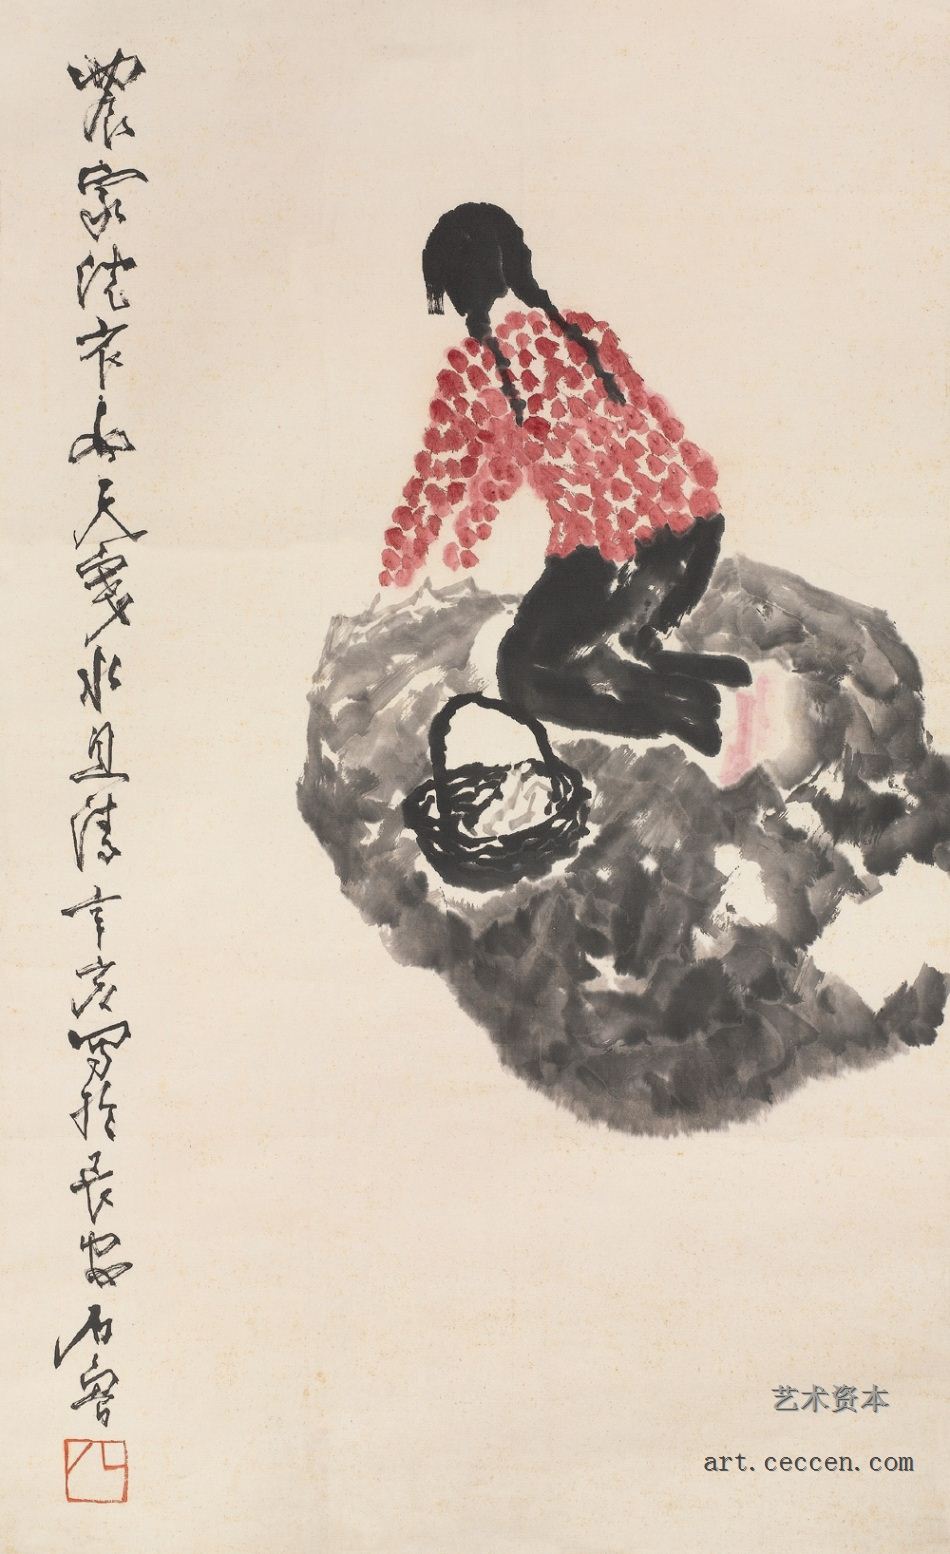 農家浣衣女天寒水且清辛亥写於長安石魯
艺术资本
art.ceccen.com